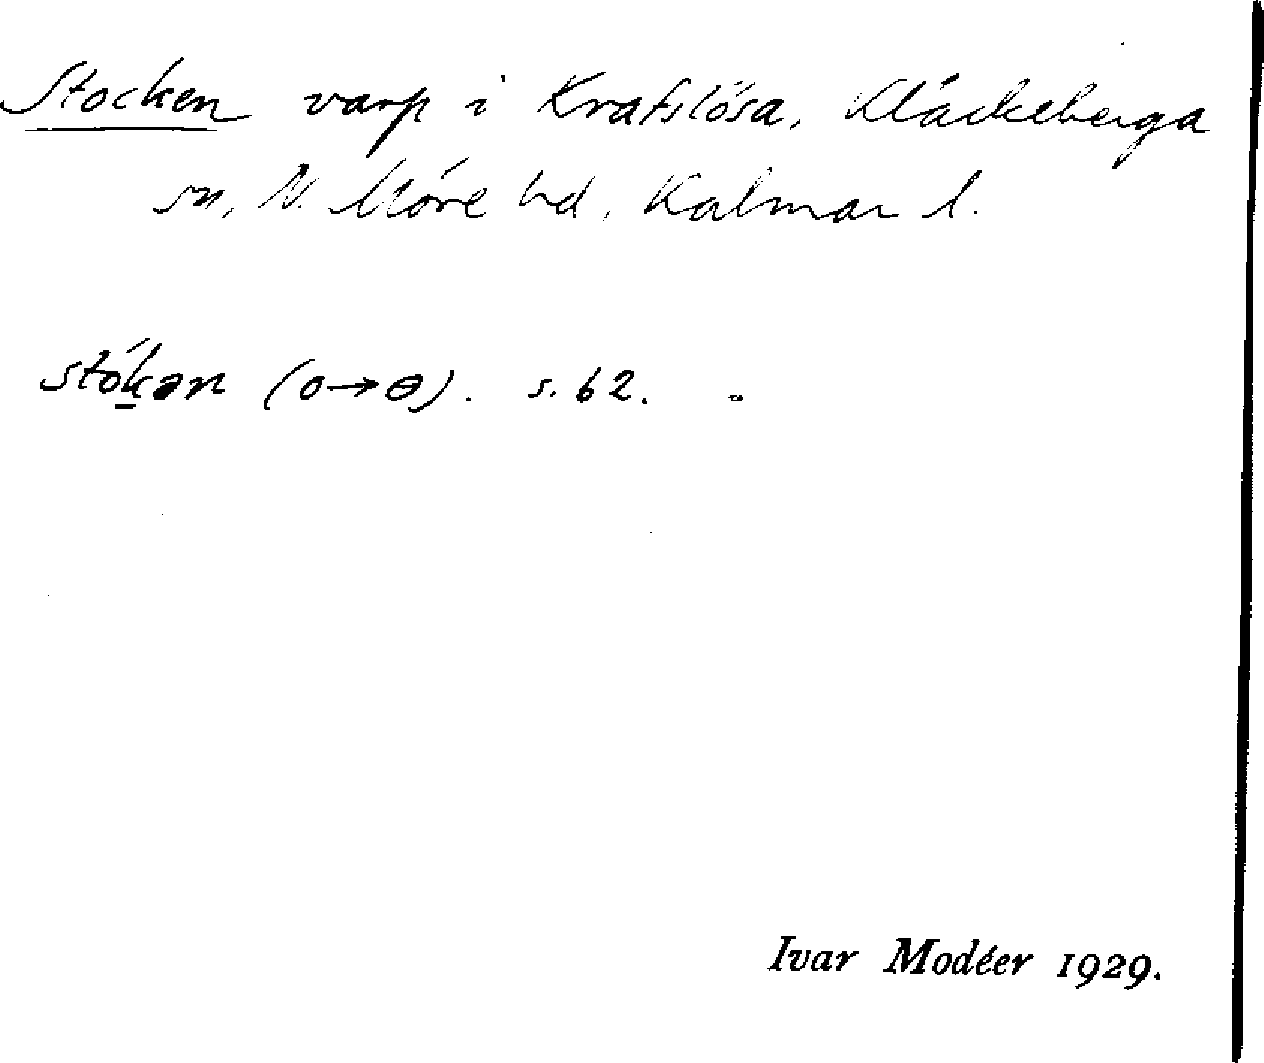 Stocken varp i Krafslösa, Kläckeberga
sn, N. Möre hd, Kalmar l.
stók̲ən (o→ɵ). s. 62.
Ivar Modéer 1929.